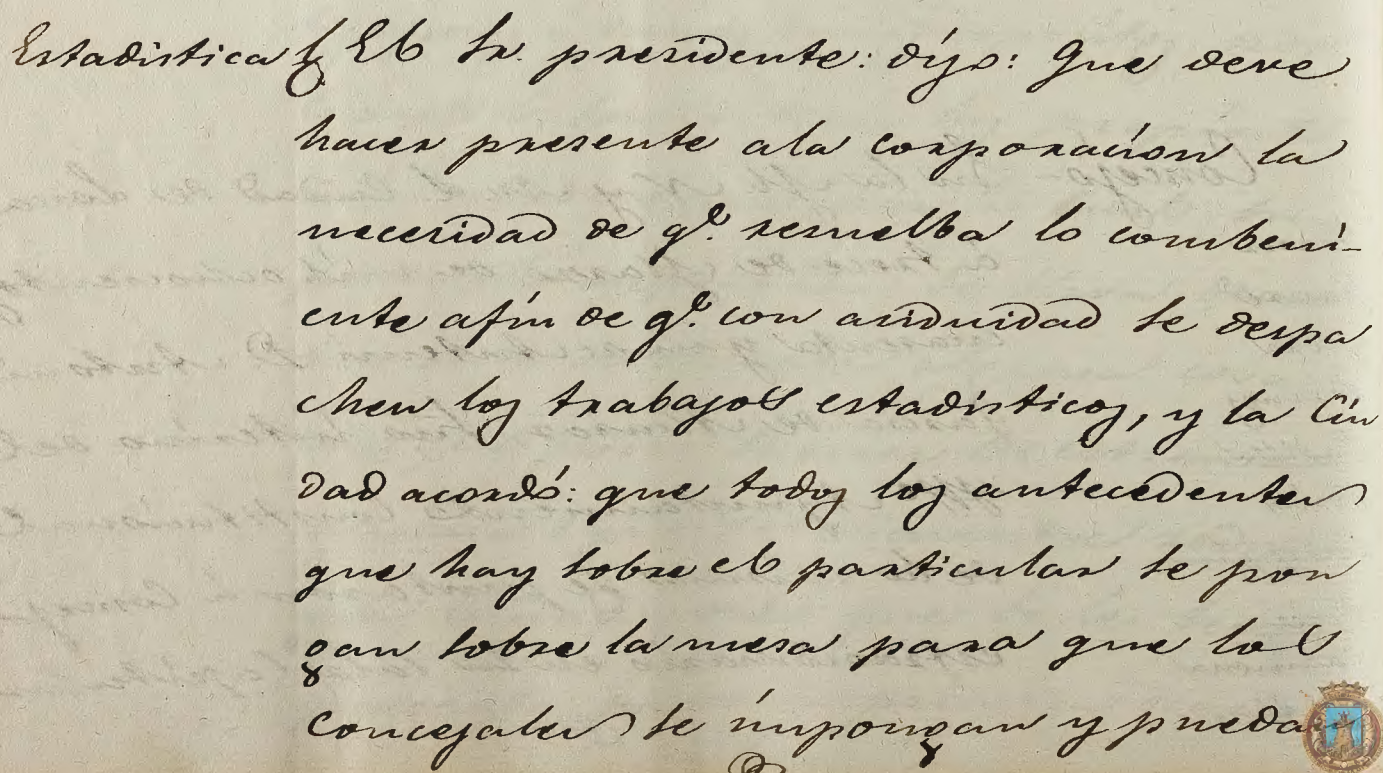 Estadistica El Sr. presidente: dijo: Que deve
hacer presente ala corporacion la
necesidad de qe. resuelba lo combeni-
ente afin de qe. con asiduidad se despa
chen los trabajos estadisticos, y la Ciu
dad acordó: que todos los antecedentes
que hay sobre el particular se pon
gan sobre la mesa para que los
Concejales se impongan y pueda